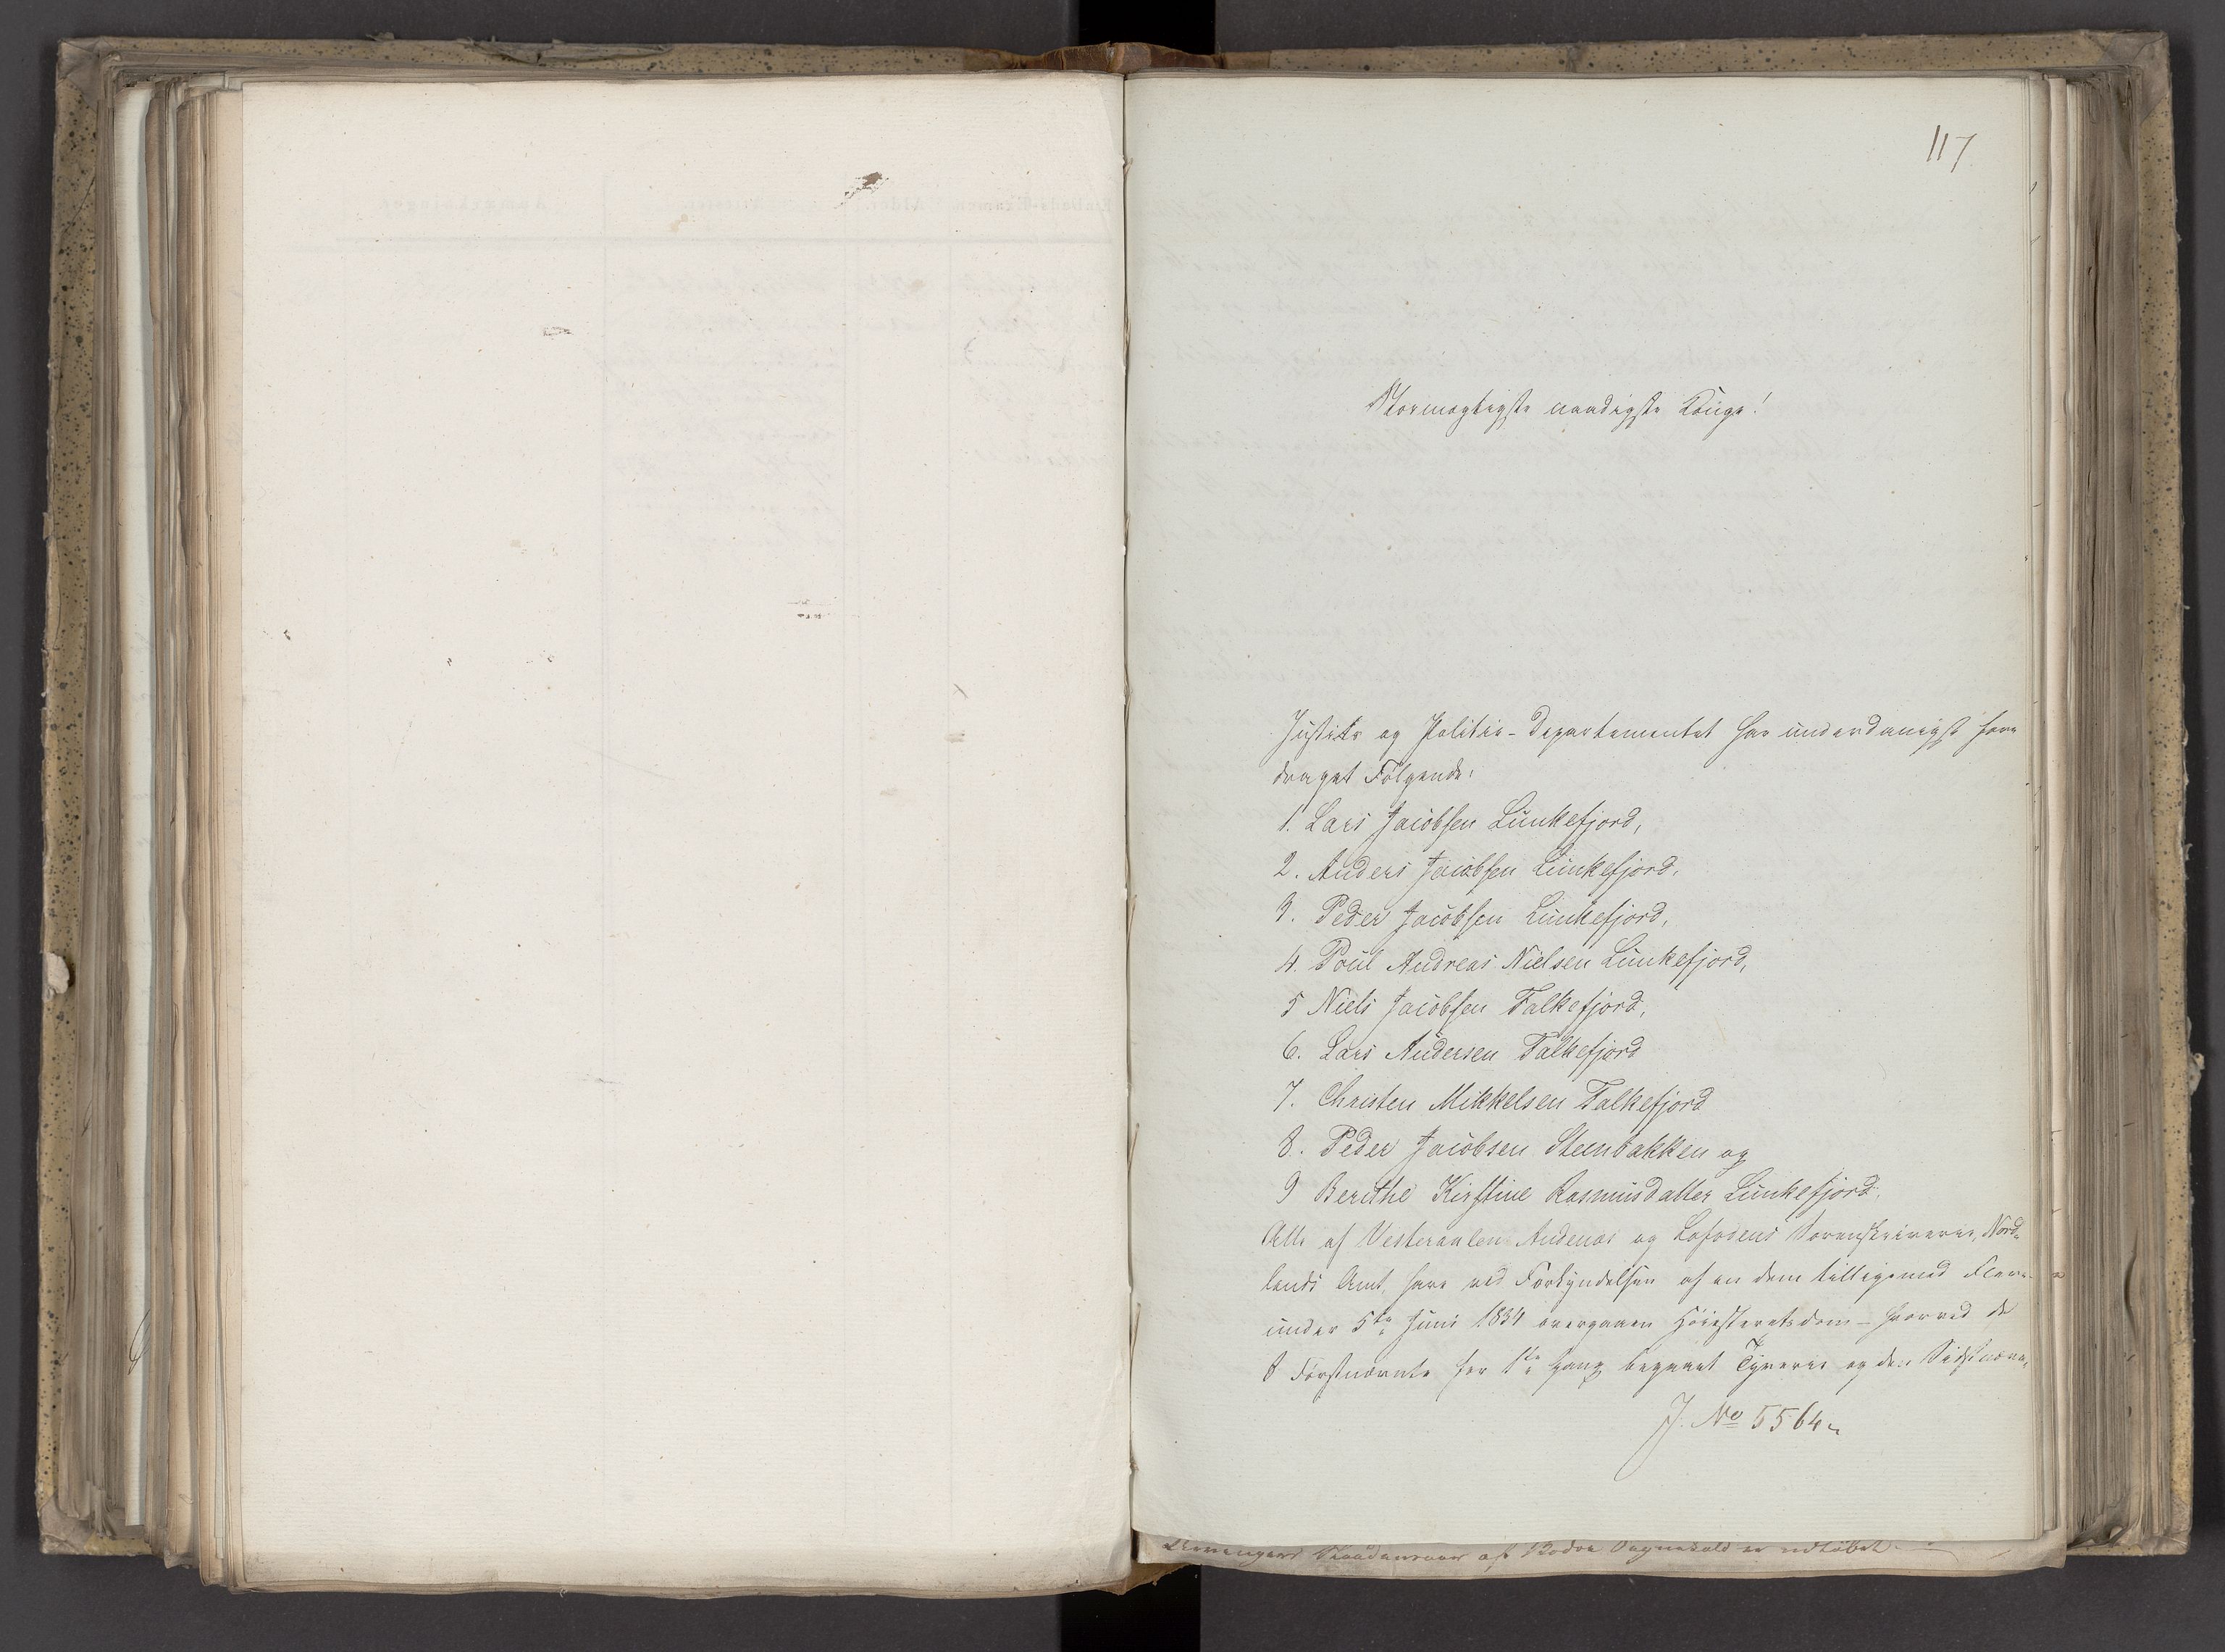 117
Stormægtigste naadigste Konge!
Justits og Politie-Departementet har underdanigst fore
draget Følgende:
1. Lars Jacobsen Lunkefjord,
2. Anders Jacobsen Lunkefjord,
3. Peder Jacobsen Lunkefjord,
4. Poul Andreas Nielsen Lunkefjord,
5 Niels Jacobsen Falkefjord,
6. Lars Andersen Falkefjord
7. Christen Mikkelsen Falkefjord
8. Peder Jacobsen Steenbakken og
9 Berithe Kirstine Rasmusdatter Lunkefjord,
Alle af Vesteraalen Andenæs og Lofodens Sorenskriverie, Nord-
lands Amt, have ved Forkyndelsen af en dem tilligemed Flere
under 5te Juni 1834 overgaaen Høiesteretsdom - hvorved de
8 Førstnævnte for 1ste Gang begaaet Tyverie og den Sidstnævn-
J. No 5564.
af Bodøe er udløbet.